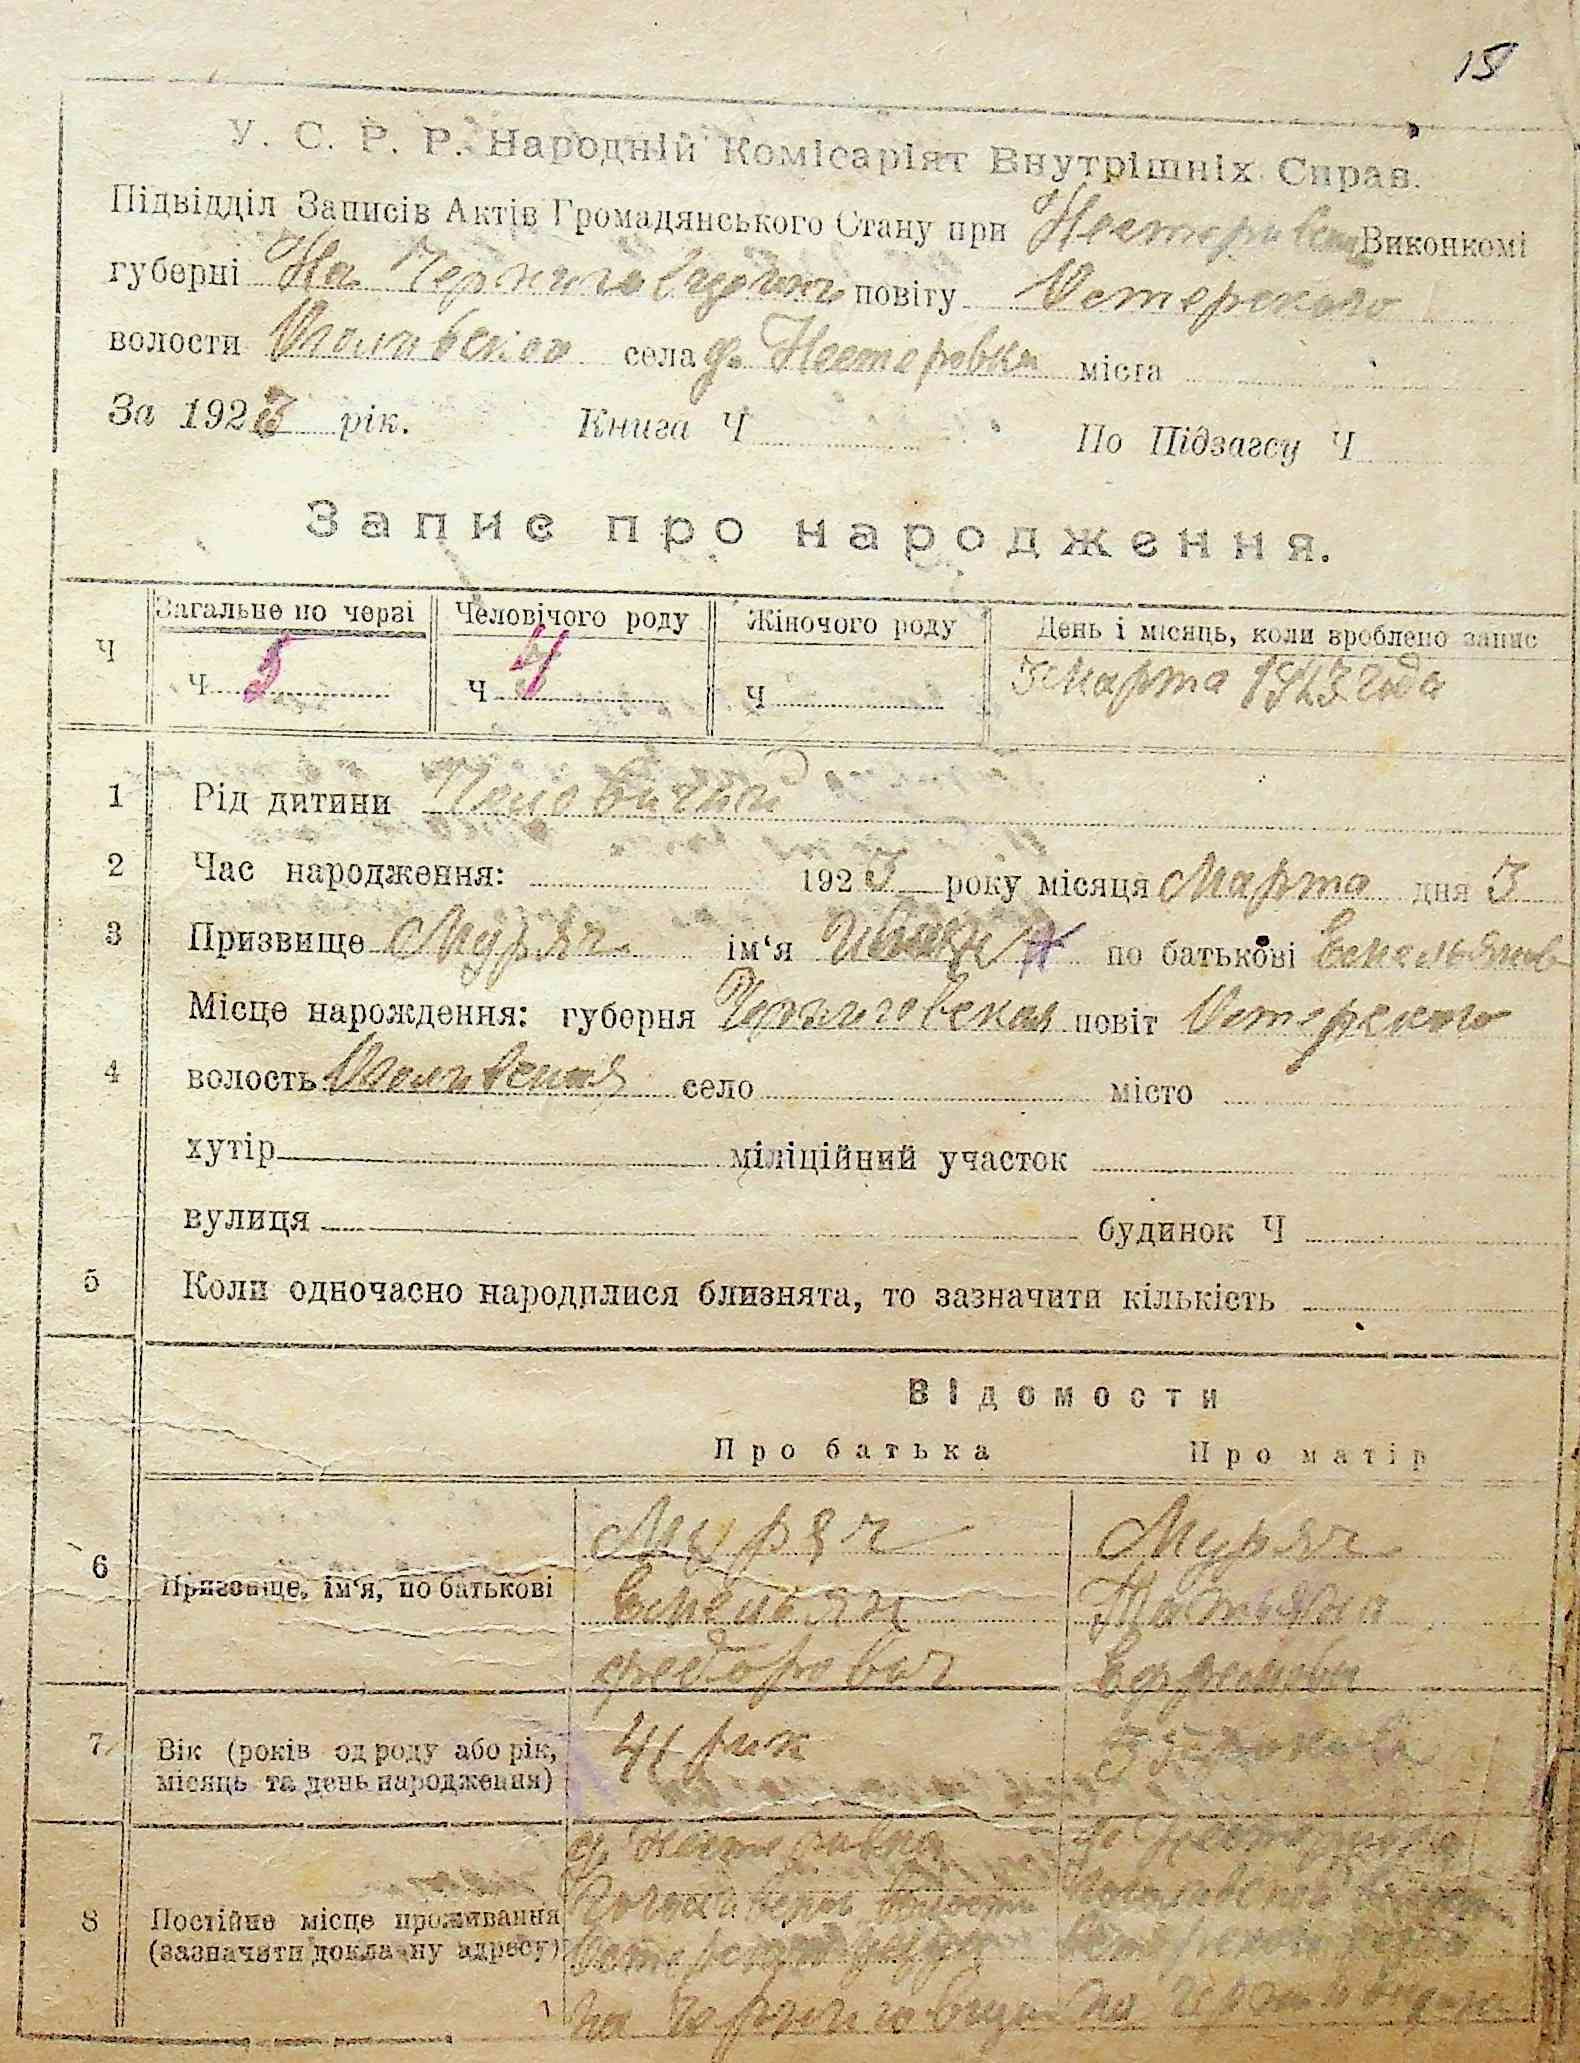 15
У. С. Р. Р. Народній Комісаріят Внутрішніх Справ.
Підвідділ Записів Актів Громадянського Стану при Виконкомі
губерні На Черниговщини повіту Остерского
волости села д. Нестеровки міста
За 1923 рік. Книга Ч По Підзагсу Ч
Запис про народження.
Ч Загальне по черзі Человічого роду Жіночого роду День і місяць, коли зроблено запис
Ч 5 Ч 4 Ч 3 марта 1923 года
1 Рід дитини
2 Час народження: 1923 року місяця Марта дня 3
3 Призвище Муряч ім‘я Иван по батькові Емельянов
Місце народження: губерня Черниговская повіт Остерского
4 волость село місто
хутір міліційний участок
вулиця будинок Ч
5 Коли одночасно народилися близнята, то зазначити кількість
Відомости
Про батька Про матір
6 Призвище, ім‘я, по батькові
Муряч Муряч
Емельян Татьяна
Федорович
7 Вік (років од роду або рік, місяць та день народження)
41 рик
8 Постійне місце проживання (зазначати докладну адресу)
д. волости
на Черниговщини на